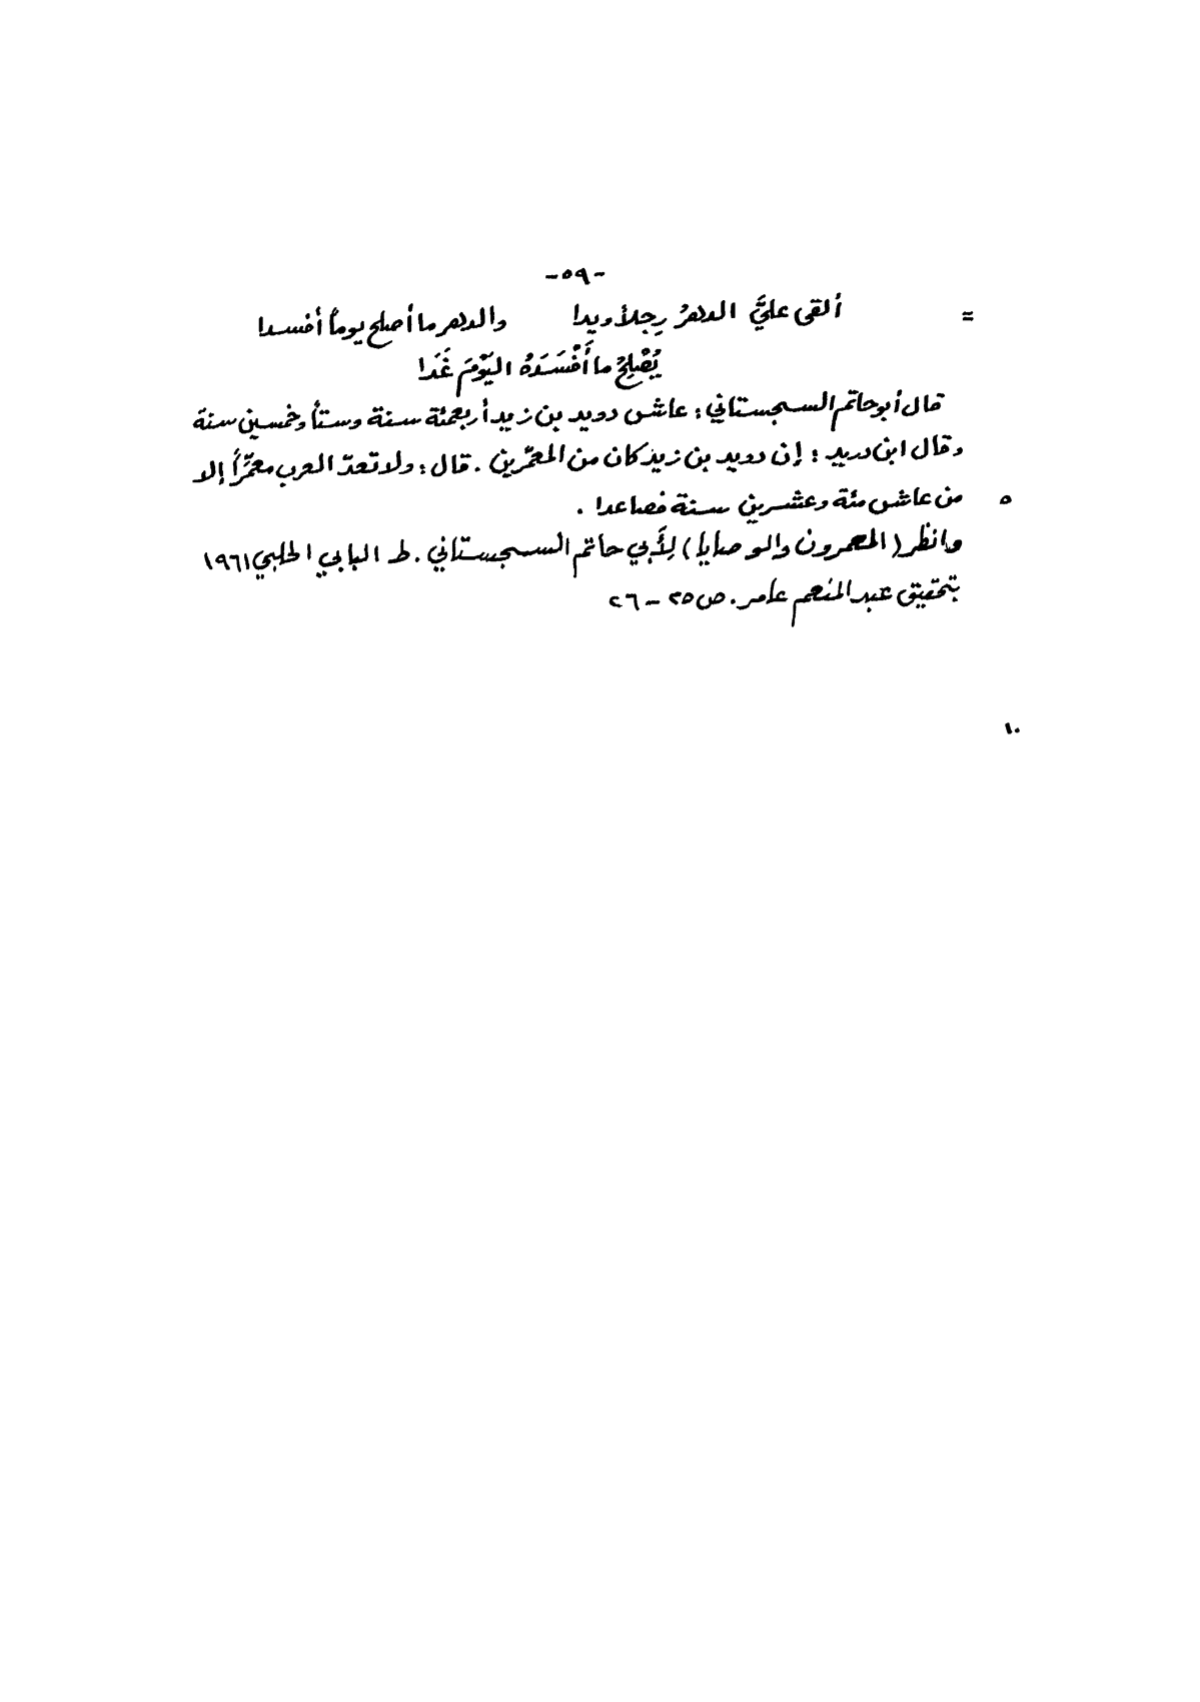 -٥٩-
= ألقى عليَّ الدهرُ رِجلاً ويدا والدهر ما أصلح يوماً أفسدا
يُصْلِحُ ما أَفْسَدَهُ اليَوْمَ غَدَا
قال أبو حاتم السجستاني: عاش دويد بن زيد أربعمئة سنة وستاً وخمسين سنة
وقال ابن دريد: إن دويد بن زيد كان من المعمّرين. قال: ولا تعدّ العرب معمِّراً إلا
٥ من عاش مئة وعشرين سنة فصاعدا.
وانظر (المعمرون والوصايا) لِأَبي حاتم السجستاني. ط البابي الحلبي ١٩٦١
بتحقيق عبد المنعم عامر. ص ٢٥ - ٢٦
١٠